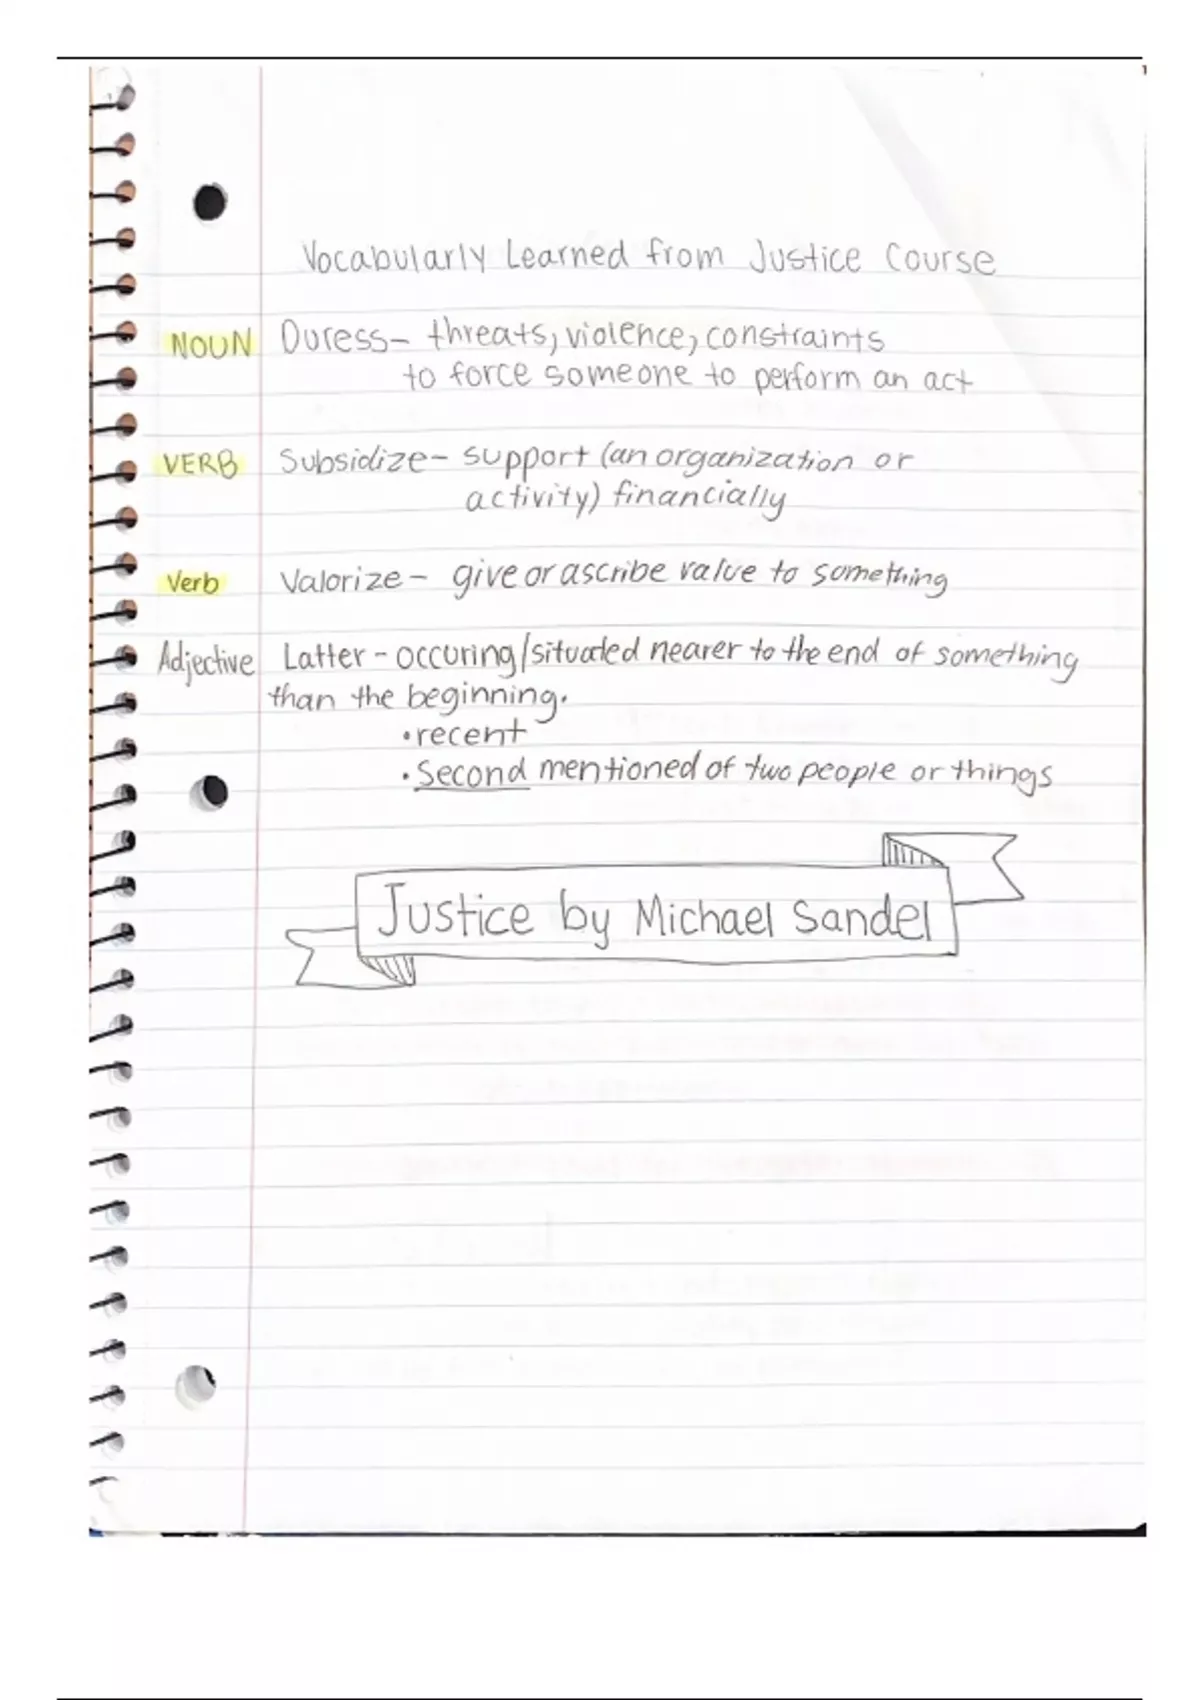 Vocabularly Learned from Justice Course
NOUN Duress- threats, violence, constraints
to force someone to perform an act
VERB Subsidize- support (an organization or
activity) financially
Verb Valorize- give or ascribe value to something
Adjective Latter- occuring/situated nearer to the end of something
than the beginning.
•recent
•Second mentioned of two people or things
Justice by Michael Sandel